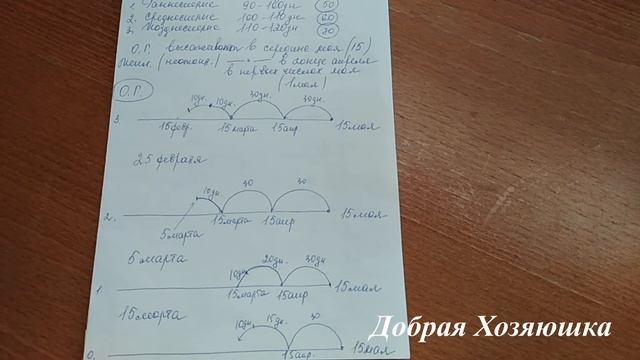 1. Раннеспелые 90-100дн (50)
2. Среднеспелые 100-110дн (60)
3. Позднеспелые 110-120дн (70)
О.Г. высаживают в середине мая (15)
Тепл. (неотопл.) —"— в конце апреля
в первых числах мая
(1мая)
О.Г.
10дн. 10дн. 30дн. 30дн.
3. 15февр. 15марта 15апр 15мая
25 февраля
10дн. 30 30
2. 5марта 15марта 15апр 15мая
5марта
10дн 20дн. 30дн
1. 15марта 15апр 15мая
15марта
10дн. 15дн. 30
0. 15апр. 15мая
Добрая Хозяюшка